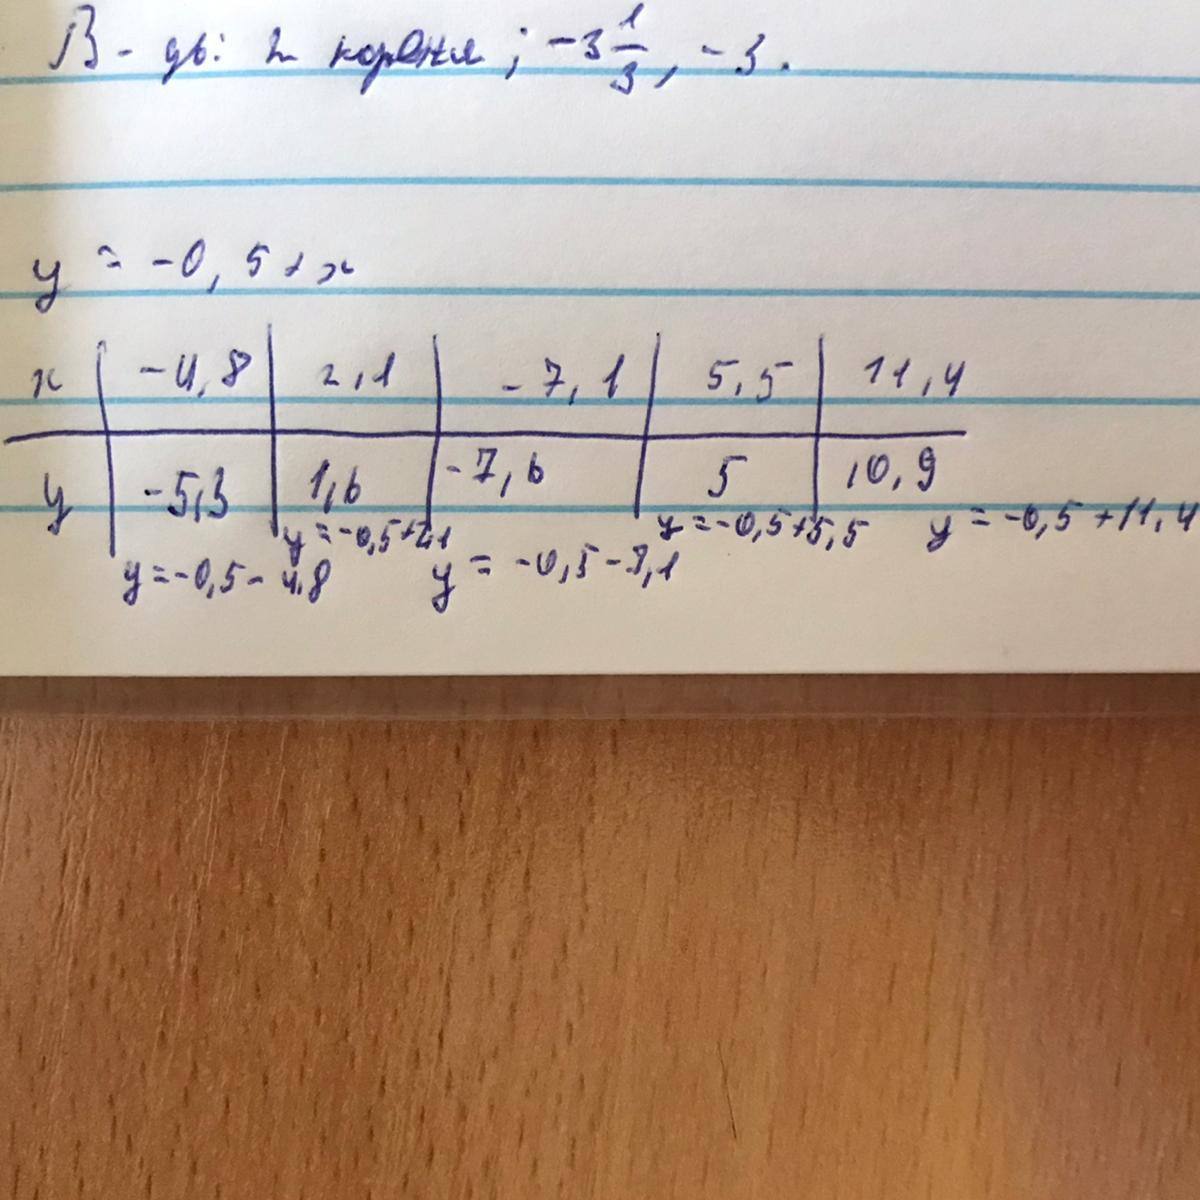 В-дь: 2 корня; -3 1/3, -3.
y = -0,5+x
x | -4,8 | 2,1 | -7,1 | 5,5 | 11,4
y | -5,3 | 1,6 | -7,6 | 5 | 10,9
y=-0,5-4,8 y=-0,5+2,1 y = -0,5-7,1 y=-0,5+5,5 y = -0,5+11,4